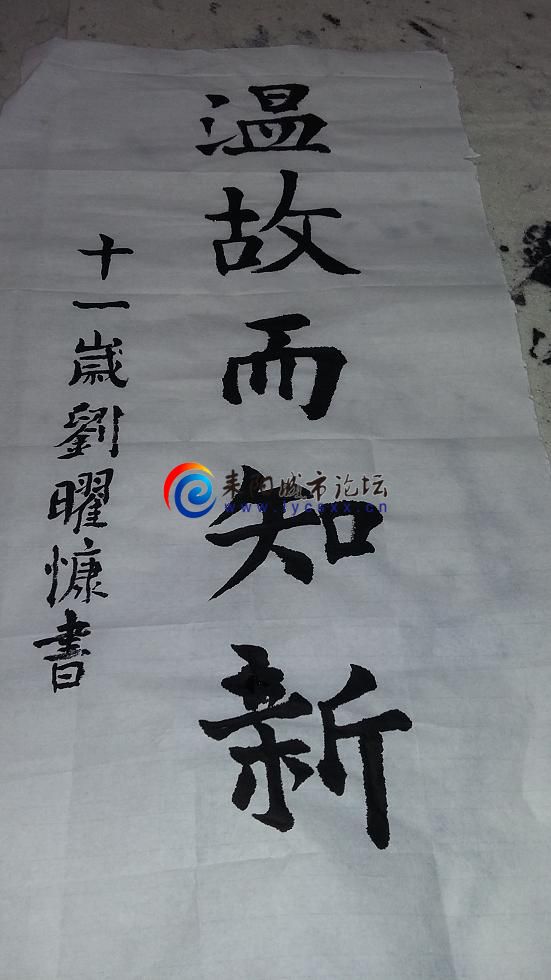 温故而知新
十一歲劉曜慷書
耒阳城市论坛
www.lycsxx.cn